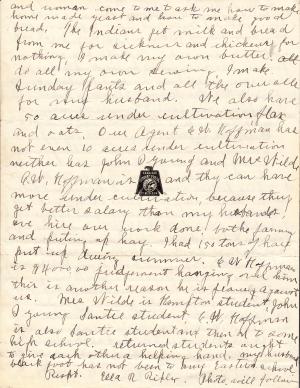 and woman come to met ask me how to make
home made yeast and how to make good
bread. The Indians get milk and bread
from me for sickness and chickens for
nothing I make my own butter. all
do all my own Sewing. I make
Sunday Pants and all the overalls
for my husband. We also have
50 acres under cultivation flax
and oats. Our Agent C.W. Hoffman has
not even 10 acres under cultivation
neither has John J young and Mrs Wilde
C.W. Hoffman is and they can have
more under cultivation because they
get better salary than my husband
we hire our work done, both farming
and puting up hay. I had 150 tons of hay
put up during summer. C W Hoffman
is judgement hanging over him
this is another reason he is against
us. Mrs Wilde is Hampton student, John
J young Santie student C.W. Hoffman
is also Santie student and then to some
high school. returned students ought
to give each other a helping hand. my husband
black foot has not been to any Eastern school
Respt. Ella R Ripley. Photo will follow